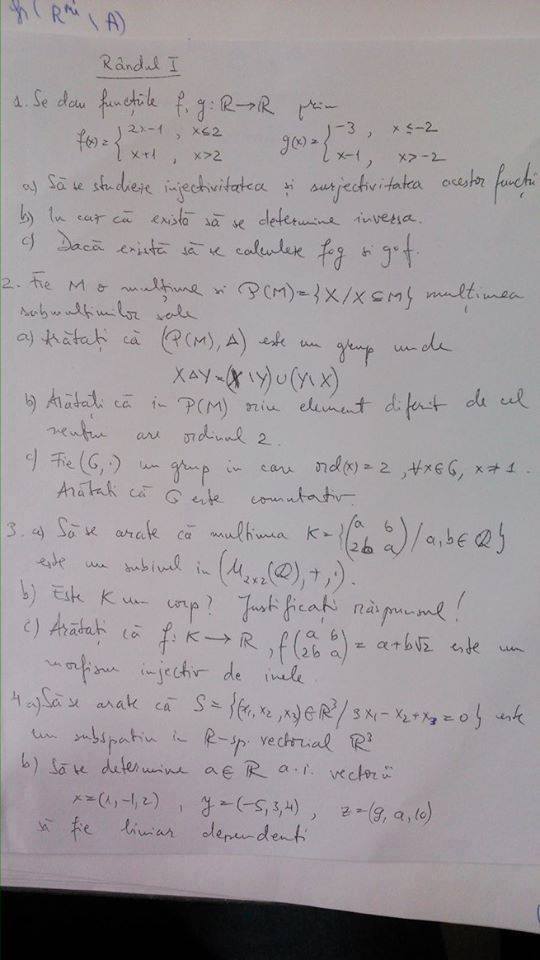 Rândul I
1. Se dau funcțiile f, g : R → R prin
f(x) = { 2x-1 , x≤2 g(x) = { -3 , x ≤ -2
x+1 , x>2 x-1 , x > -2
a) Să se studieze injectivitatea și surjectivitatea acestor funcții
b) In caz că există să se determine inversa.
c) Dacă există să se calculeze fog si gof.
2. Fie M o mulțime si P(M) = {X / X ⊆ M} mulțimea
submulțimilor sale
a) Arătați că (P(M), Δ) este un grup unde
XΔY = (X \ Y) ∪ (Y \ X)
b) Arătați că in P(M) orice element diferit de cel
neutru are ordinul 2.
c) Fie (G, ·) un grup in care ord(x) = 2 , ∀x∈G, x ≠ 1.
Arătati că G este comutativ.
3. a) Să se arate că multimea K = { (a b / 2b a) / a, b ∈ Q }
este un subinel in (M2×2(Q), +, ·).
b) Este K un corp? Justificați răspunsul!
c) Arătați că f : K → R , f (a b / 2b a) = a+b√2 este un
morfism injectiv de inele.
4 a) Să se arate că S = {(x1, x2, x3) ∈ R³ / 3x1 - x2 + x3 = 0} este
un subspatiu in R-sp. vectorial R³
b) Să se determine a ∈ R a.i. vectorii
x = (1, -1, 2) , y = (-5, 3, 4) , z = (9, a, 10)
să fie liniar dependenti